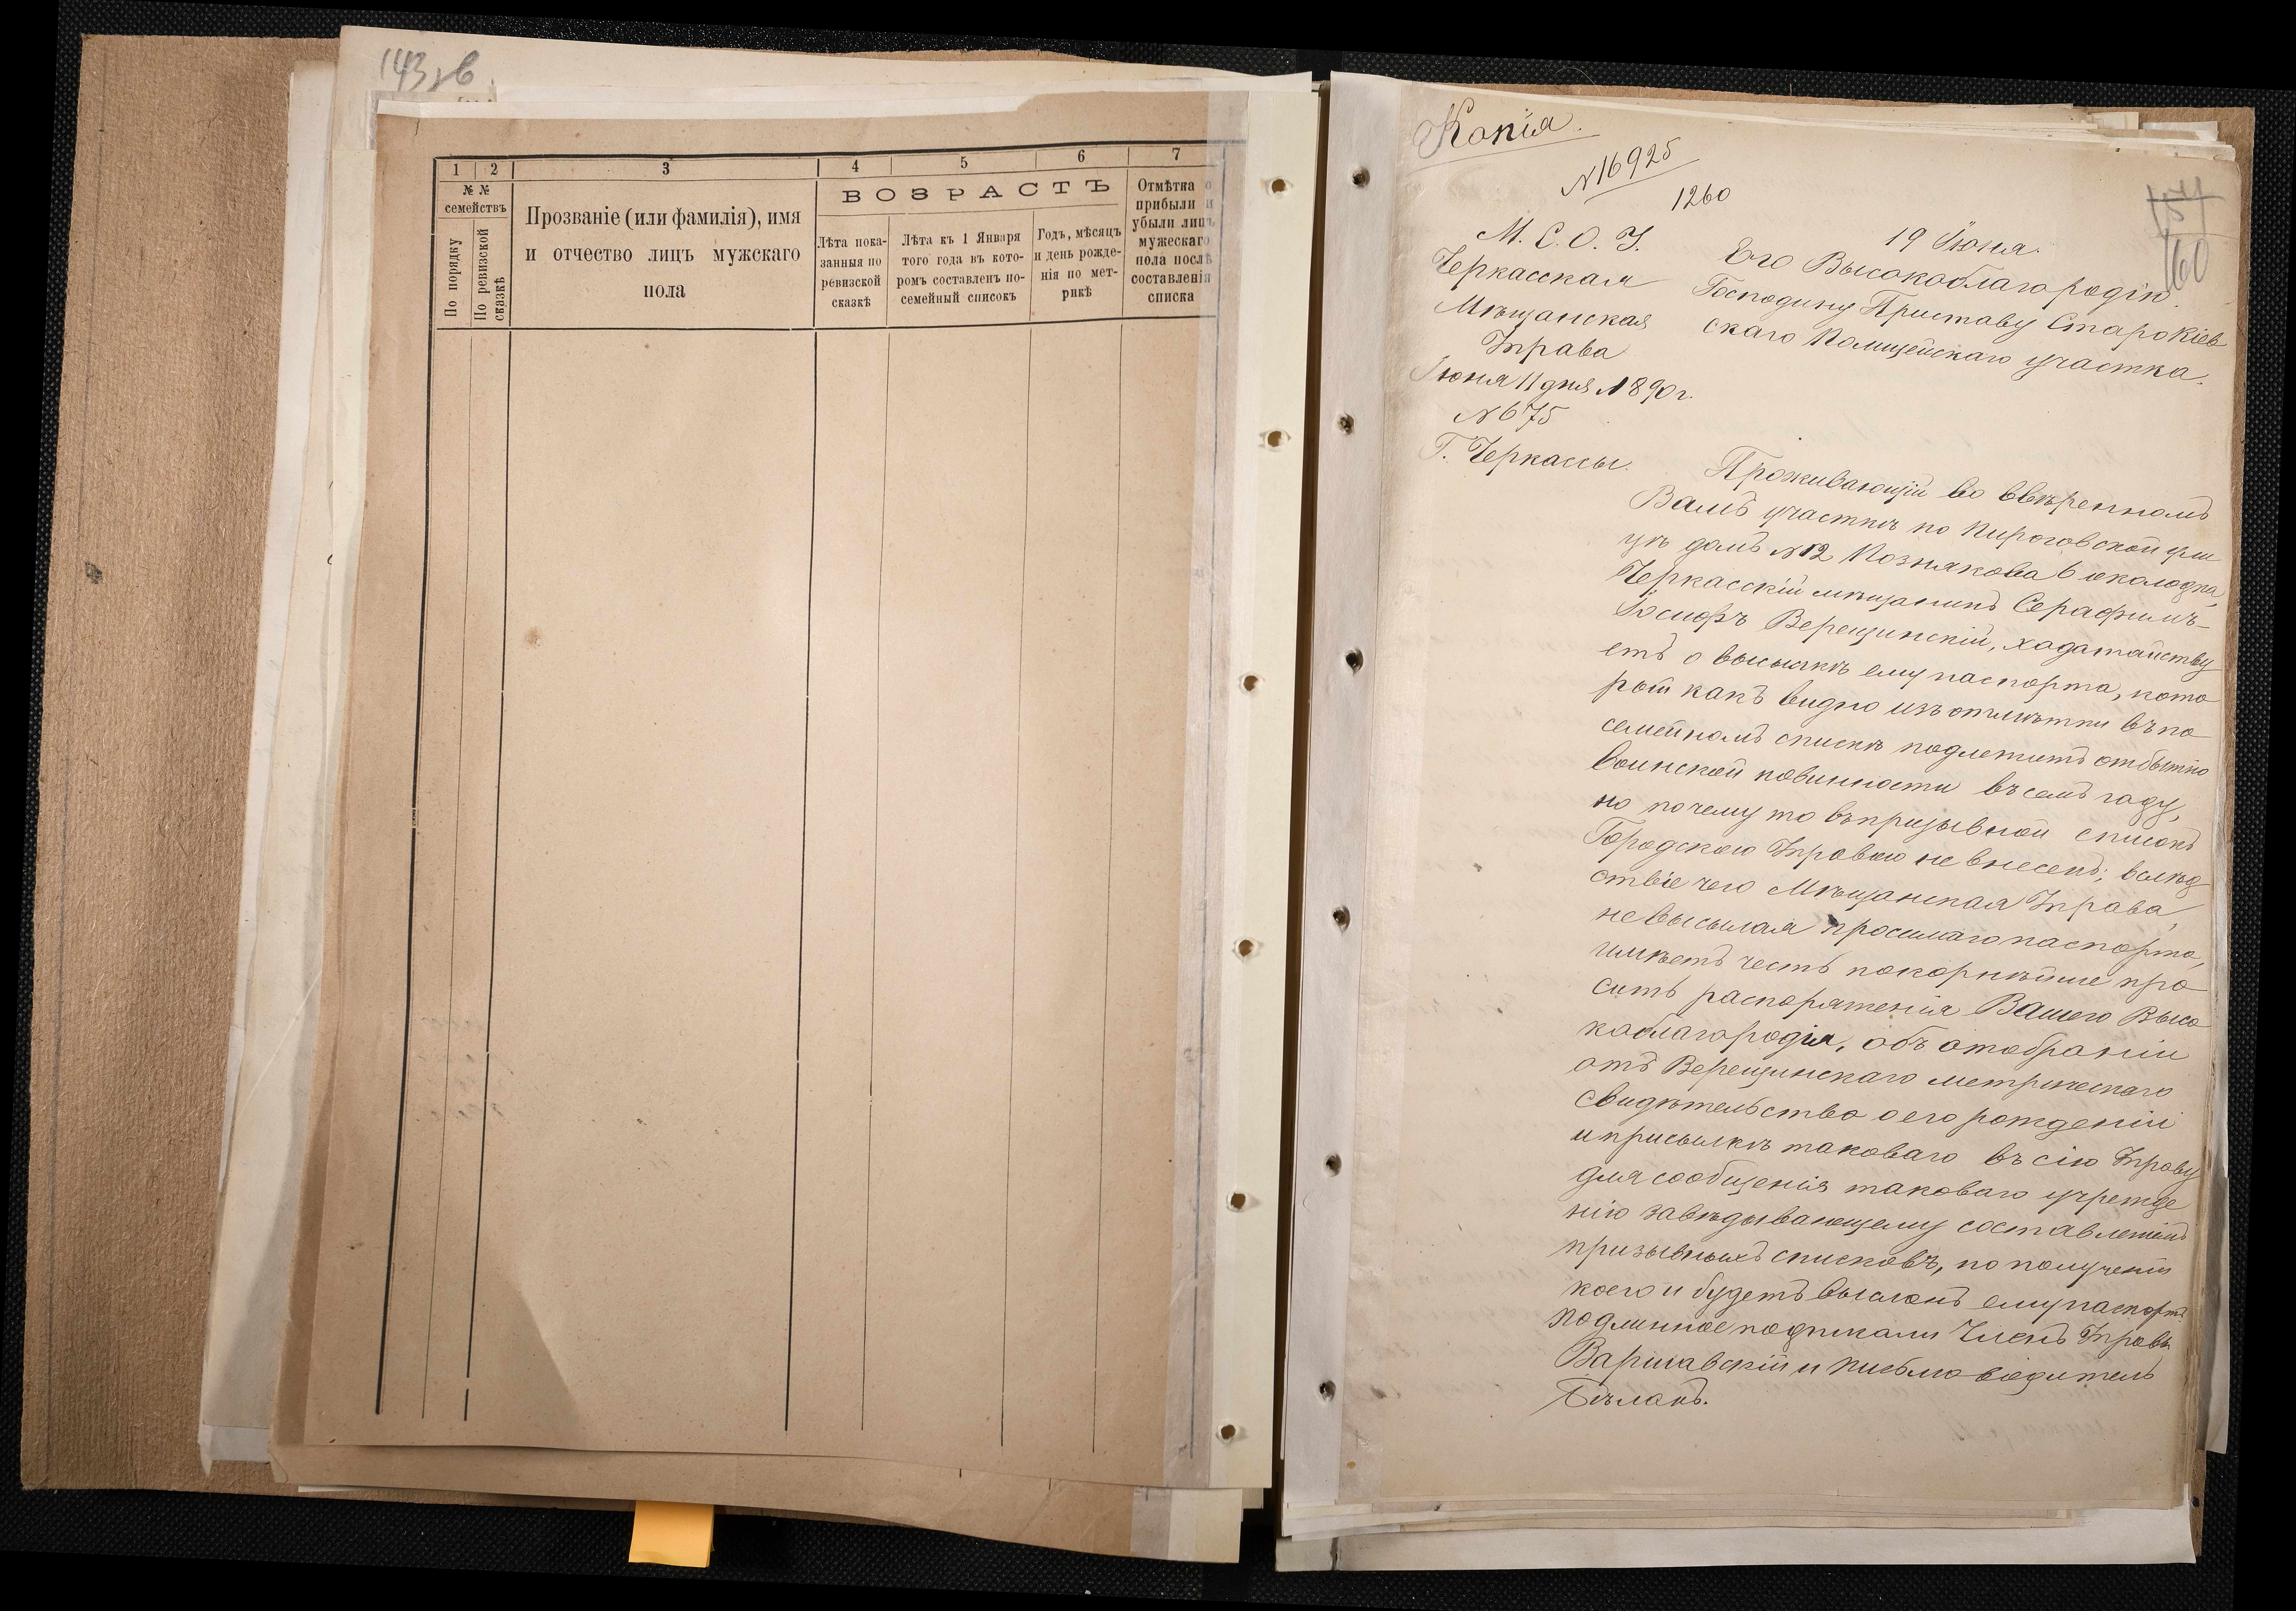 143 зв
1 2 3 4 5 6 7
№ №
семействъ
По порядку
По ревизской
сказкѣ
Прозваніе (или фамилія), имя
и отчество лицъ мужскаго
пола
ВОЗРАСТЪ
Лѣта пока-
занныя по
ревизской
сказкѣ
Лѣта къ 1 Января
того года въ кото-
ромъ составленъ по-
семейный списокъ
Годъ, мѣсяцъ
и день рожде-
нія по мет-
рикѣ
Отмѣтка о
прибыли и
убыли лицъ
мужескаго
пола послѣ
составленія
списка
Копія.
№ 16925
1260
157
160
М. С. О. У.
Черкасская
Мѣщанская
Управа
Іюня 11 дня 1890 г.
№ 675
Г. Черкассы.
19 Іюня.
Его Высокоблагородію
Господину Приставу Старокіев
скаго Полицейскаго участка.
Проживающій во ввѣренномъ
Вамъ участкѣ по Пироговской ули
цѣ домъ №12 Познякова 6 околодка,
Черкасскій мѣщанинъ Серафимъ-
Іосифъ Верещинскій, ходатайству
етъ о высылкѣ ему паспорта, кото
рый какъ видно изъ отмѣтки въ по
семейномъ спискѣ подлежитъ отбытію
воинской повинности въ семъ году,
но почему то въ призывной списокъ
Городскою Управою не внесенъ; вслѣд
ствіе чего Мѣщанская Управа,
не высылая просимаго паспорта,
имѣетъ честь покорнѣйше про
сить распоряженія Вашего Высо
коблагородія, объ отобраніи
отъ Верещинскаго метрическаго
свидѣтельства о его рожденіи
и присылкѣ таковаго въ сію Управу
для сообщенія таковаго учрежде
нію завѣдывающему составленіемъ
призывныхъ списковъ, по полученіи
коего и будетъ высланъ ему паспортъ.
Подлинное подписали Членъ Управы
Варшавскій и Письмоводитель
Бѣланъ.